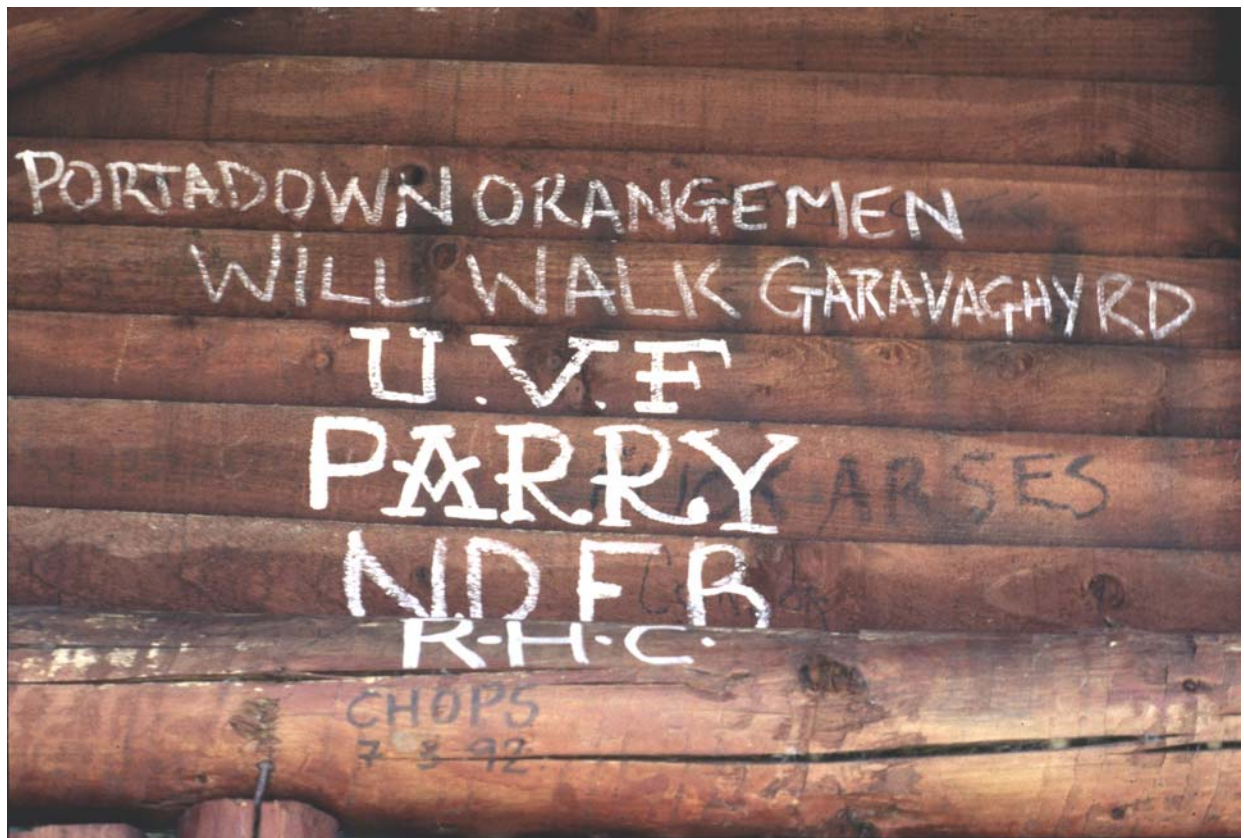 PORTADOWN ORANGEMEN
WILL WALK GARAVAGHY RD
U.V.F
PARRY
ARSES
N.D F B
R.H.C.
CHOPS
7 8 92